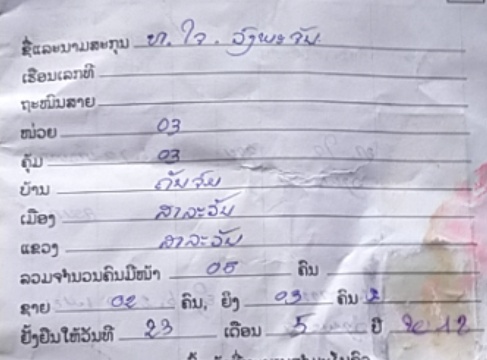 ຊື່ແລະນາມສະກຸນ ທ. ໃຈ . ວົງພະຈັນ
ເຮືອນເລກທີ
ຖະໜົນສາຍ
ໜ່ວຍ 03
ຄຸ້ມ 03
ບ້ານ
ເມືອງ ສາລະວັນ
ແຂວງ ສາລະວັນ
ລວມຈຳນວນຄົນມີໜ້າ 05 ຄົນ
ຊາຍ 02 ຄົນ, ຍິງ 03 ຄົນ
ຢັ້ງຢືນໃຫ້ວັນທີ 23 ເດືອນ 5 ປີ 2012